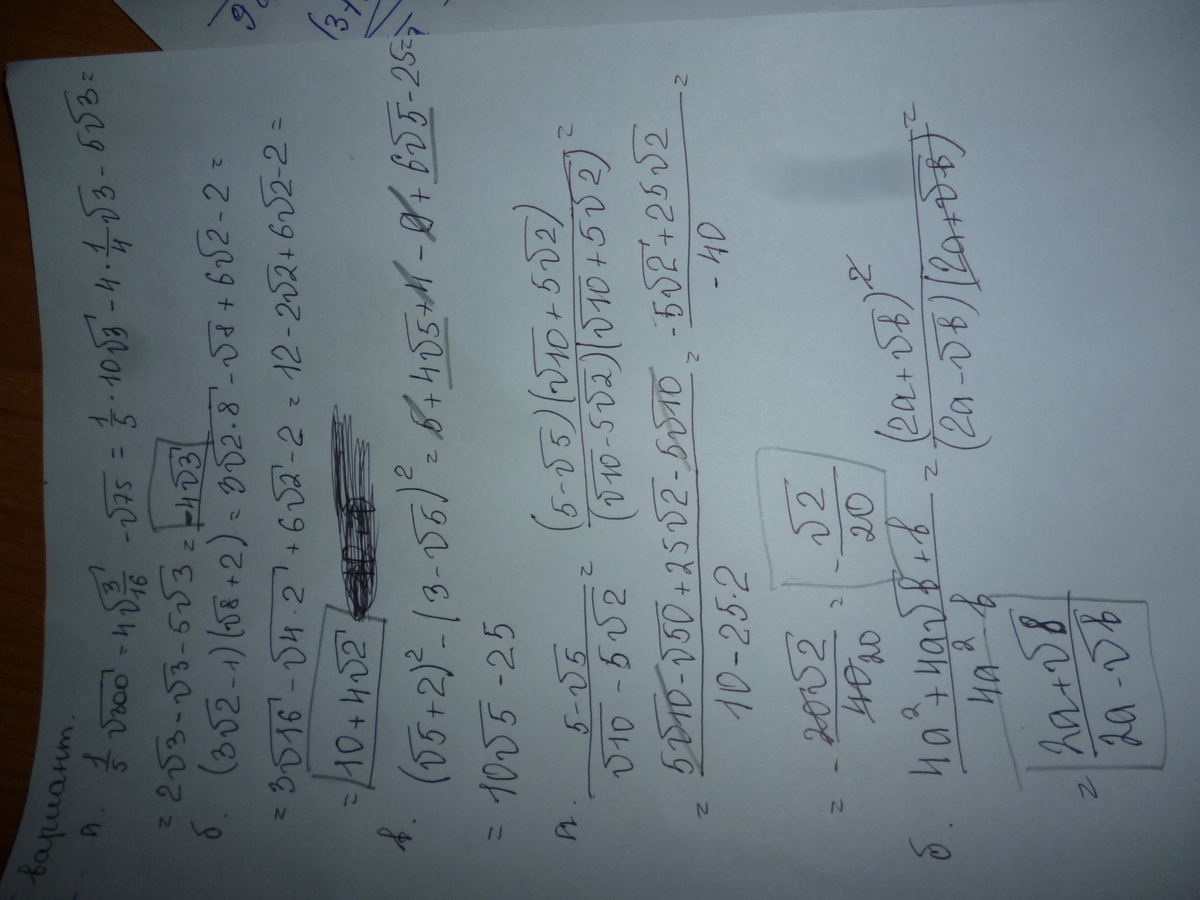 вариант.
а. 1/5 √300 = 4√3/16 - √75 = 1/5 · 10√3 - 4 · 1/4 √3 - 5√3 =
= 2√3 - √3 - 5√3 = -4√3
б. (3√2 - 1)(√8 + 2) = 3√2·8 - √8 + 6√2 - 2 =
= 3√16 - √4·2 + 6√2 - 2 = 12 - 2√2 + 6√2 - 2 =
= 10 + 4√2
в. (√5 + 2)² - (3 - √5)² = 5 + 4√5 + 4 - 9 + 6√5 - 25 =
= 10√5 - 25
а. 5 - √5 / √10 - 5√2 = (5 - √5)(√10 + 5√2) / (√10 - 5√2)(√10 + 5√2) =
= 5√10 - √50 + 25√2 - 5√10 / 10 - 25·2 = -5√2 + 25√2 / -40 =
= - 20√2 / 40 20 = - √2 / 20
б. 4a² + 4a√b + b / 4a² - b = (2a + √b)² / (2a - √b)(2a + √b) =
= 2a + √b / 2a - √b